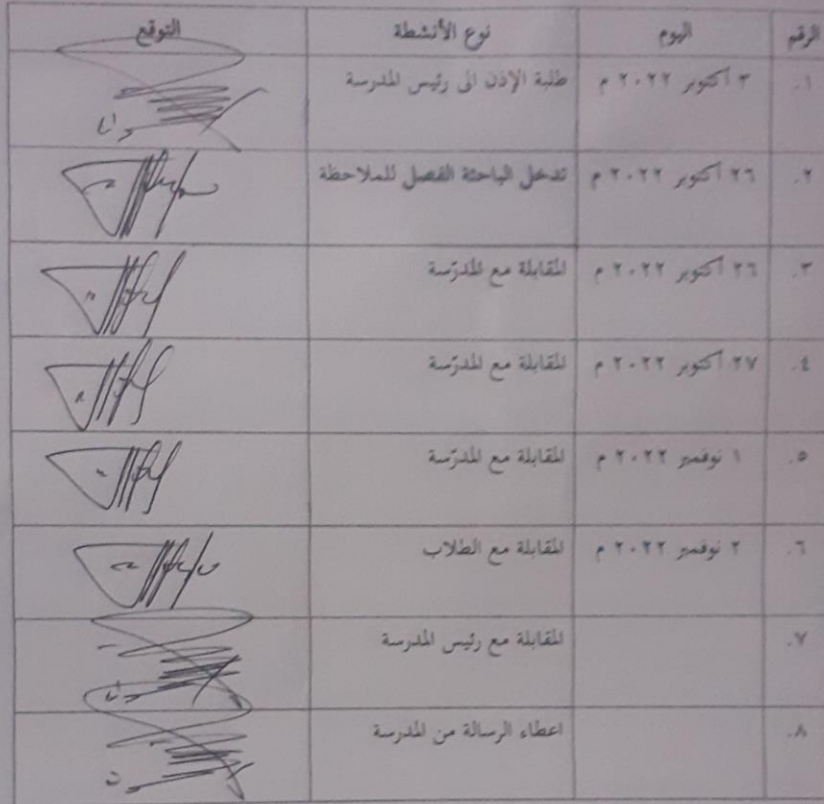 الرقم اليوم نوع الأنشطة التوقع
١. ٣ أكتوبر ٢٠٢٢ م طلبة الإذن الى رئيس المدرسة
٢. ٢٦ أكتوبر ٢٠٢٢ م تدخل الباحثة الفصل للملاحظة
٣. ٢٦ أكتوبر ٢٠٢٢ م المقابلة مع المدرّسة
٤. ٢٧ أكتوبر ٢٠٢٢ م المقابلة مع المدرّسة
٥. ١ نوفمبر ٢٠٢٢ م المقابلة مع المدرّسة
٦. ٢ نوفمبر ٢٠٢٢ م المقابلة مع الطلاب
٧. المقابلة مع رئيس المدرسة
٨. اعطاء الرسالة من المدرسة